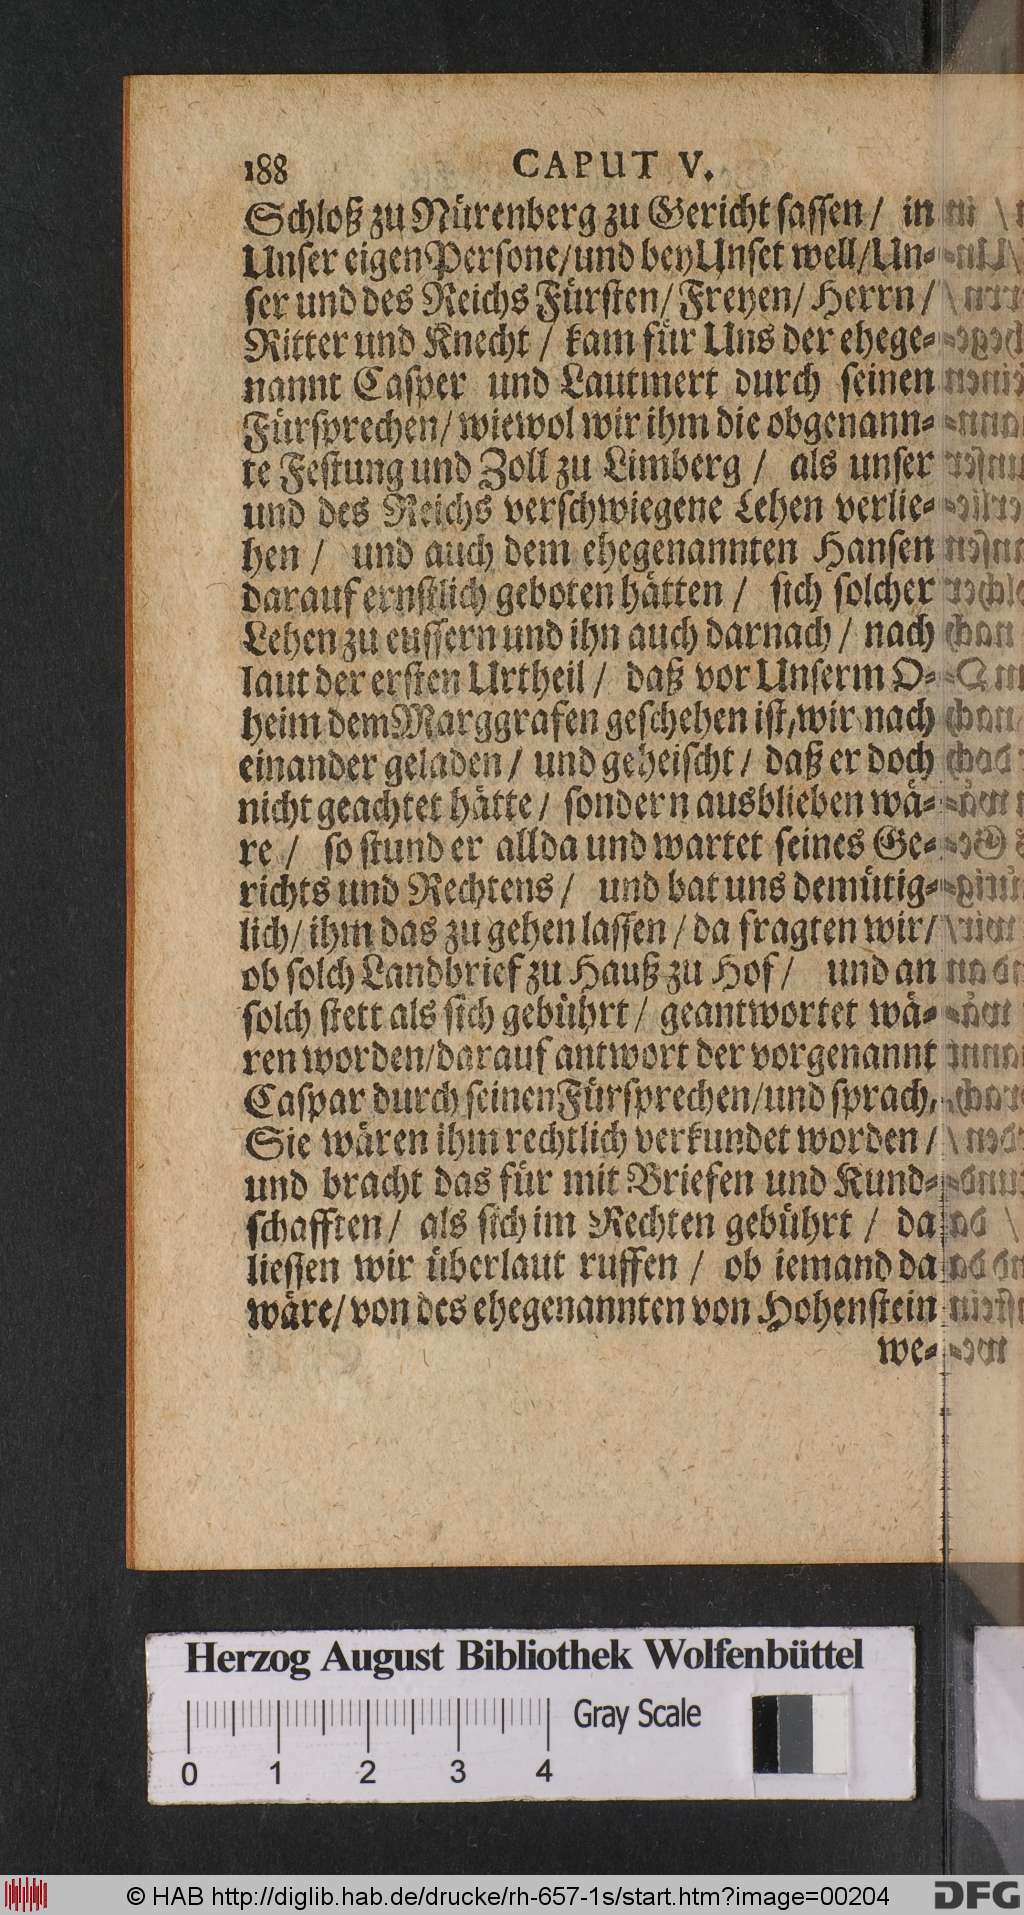 188 CAPUT V.
Schloß zu Nürenberg zu Gericht sassen / in
Unser eigen Persone/und bey Unset well/Un-
ser und des Reichs Fürsten/ Freyen/ Herrn /
Ritter und Knecht / kam für Uns der ehege-
nannt Casper und Lautmert durch seinen
Fürsprechen/ wiewol wir ihm die obgenann-
te Festung und Zoll zu Limberg / als unser
und des Reichs verschwiegene Lehen verlie-
hen / und auch dem ehegenannten Hansen
darauf ernstlich geboten hätten / sich solcher
Lehen zu eussern und ihn auch darnach / nach
laut der ersten Urtheil / daß vor Unserm O-
heim dem Marggrafen geschehen ist, wir nach
einander geladen / und geheischt / daß er doch
nicht geachtet hätte / sondern ausblieben wä-
re / so stund er allda und wartet seines Ge-
richts und Rechtens / und bat uns demütig-
lich/ ihm das zu gehen lassen / da fragten wir/
ob solch Landbrief zu Hauß zu Hof / und an
solch stett als sich gebührt / geantwortet wä-
ren worden/darauf antwort der vorgenannt
Caspar durch seinen Fürsprechen/und sprach,
Sie wären ihm rechtlich verkundet worden /
und bracht das für mit Briefen und Kund-
schafften / als sich im Rechten gebührt / da
liessen wir überlaut ruffen / ob iemand da
wäre/ von des ehegenannten von Hohenstein
we-
Herzog August Bibliothek Wolfenbüttel
Gray Scale
0 1 2 3 4
© HAB http://diglib.hab.de/drucke/rh-657-1s/start.htm?image=00204
DFG